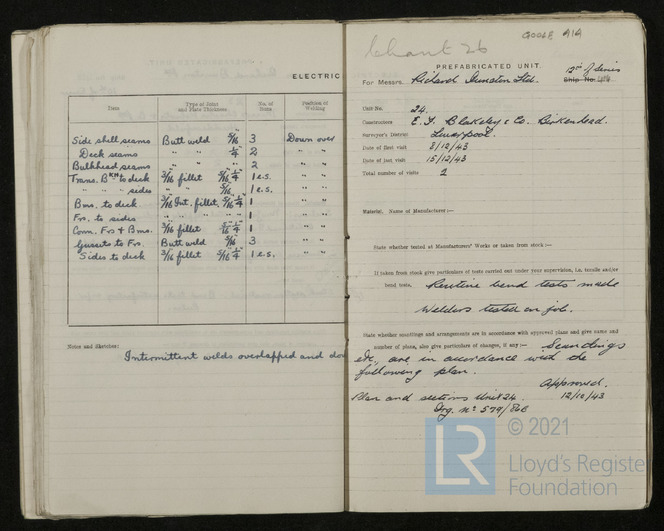 ELECTRIC
Item
Type of Joint
and Plate Thickness
No. of
Runs
Position of
Welding
Side shell seams Butt weld 5/16 3 Down over
Deck seams " " 1/4" 2 " "
Bulkhead seams " " " 2 " "
Trans. BKH to deck 3/16 fillet 5/16 1/4" 1 e.s. " "
" " " sides " " 5/16 1 e.s. " "
Bms. to deck 3/16 Int. fillet, 5/16 1/4" 1 " "
Frs. to sides " " " 1 " "
Conn. Frs & Bms. 3/16 fillet 5/16 1/4" 1 " "
Gussets to Frs. Butt weld 5/16 3 " "
Sides to deck 3/16 fillet 5/16 1/4" 1 e.s. " "
Notes and Sketches:
Intermittent welds overlapped and
GOOLE 414
Chant 26
PREFABRICATED UNIT.
12th of Series
For Messrs. Richard Dunston Ltd. Ship No.
Unit No. 24.
Constructors E. F. Blakeley & Co. Birkenhead.
Surveyor's District Liverpool.
Date of first visit 8/12/43
Date of last visit 15/12/43
Total number of visits 2
Material. Name of Manufacturer:—
State whether tested at Manufacturers' Works or taken from stock:—
If taken from stock give particulars of tests carried out under your supervision, i.e. tensile and/or
bend tests. Routine bend tests made
Welders tested on job.
State whether scantlings and arrangements are in accordance with approved plans and give name and
number of plans, also give particulars of changes, if any:— Scantlings
etc., are in accordance with the
following plan.
Approved.
Plan and sections Unit 24. 12/10/43
Drg. No 579/
© 2021
LR
Lloyd's Register
Foundation